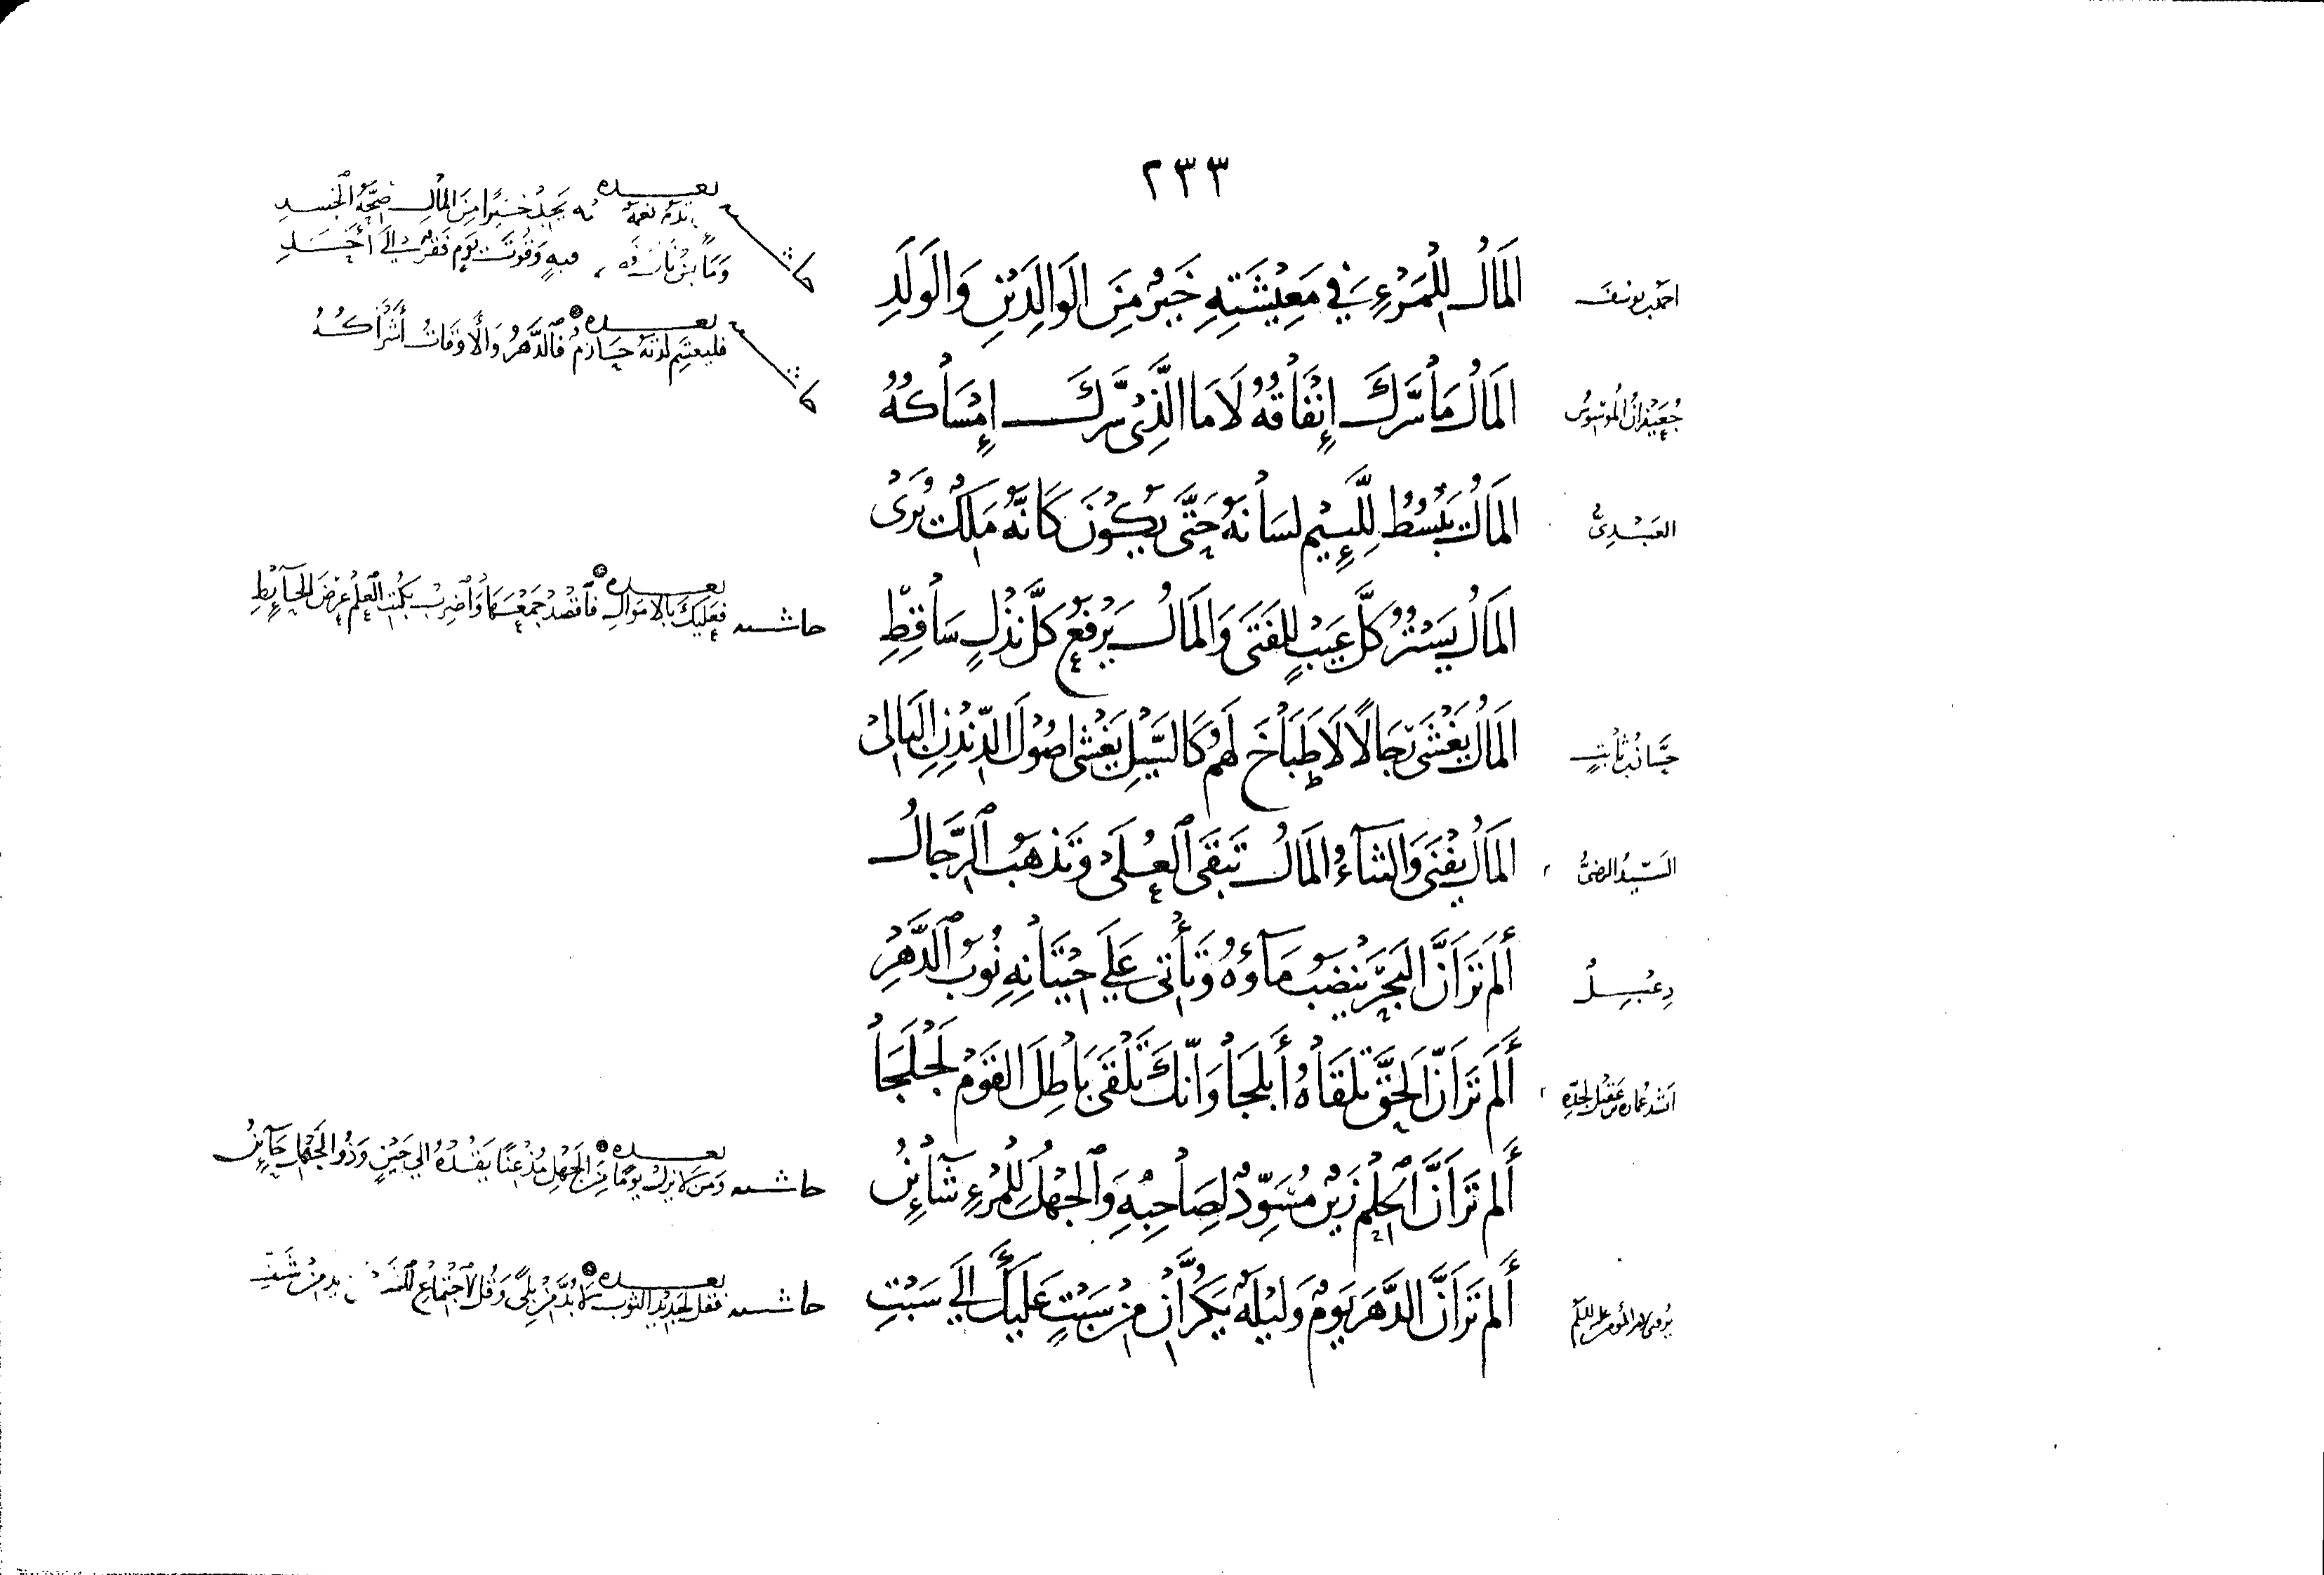 ٢٣٣
احمد بن يوسف
المَالُ لِلْمَرْءِ فِي مَعِيْشَتِهِ خَيْرٌ مِنَ الوَالِدَيْنِ وَالوَلَدِ
بعده
تجد خَيْرًا مِنَ المَالِ صِحَّةُ الجَسَدِ
وَمَا بمن نَالَ فيهِ وَقُوْتَ يَوْمٍ فَقْرٌ إِلَى أَحَدِ
جُعَيْفرانُ المُوَسْوسُ
المَالُ مَا سَرَّكَ إِنْفَاقُهُ لَا مَا الَّذِي سَرَّكَ إِمْسَاكُهُ
بعده
فليغتنم لذته حَازمٌ فَالدَّهْرُ وَالأَوقَاتُ أَشْرَاكُهُ
العَبْدِيُّ
المَالُ يَبْسُطُ لِلَّئِيْمِ لِسَانَهُ حَتَّى يَكُوْنَ كَأنَّهُ مَلِكٌ يُرَى
المَالُ يَسْتُرُ كُلَّ عَيْبٍ لِلفَتَى وَالمَالُ يَرْفَعُ كُلَّ نَذْلٍ سَاقِطِ
حاشيه
بعده
فعَلَيكَ بِالأموَالِ فَاقْصُدْ جَمْعَهَا وَاضْرِبْ بِكُتْبِ العِلْمِ عرْضَ الحَائِطِ
حَسَّانُ بْنُ ثَابتٍ
المَالُ يَغْشَى رِجَالًا لَا طَبَاخَ لَهُمْ كَالسَّيْلِ يَغْشَى اصُوْلَ الدِّنْدِنِ البَالِي
السَّيِّدُ الرضيُّ
المَالُ يَفْنَى وَالثنَآءُ المَالُ تَبْقَى العُلَى وَتَذْهَبُ الرِّجَالُ
دِعْبِلُ
أَلَمْ تَرَ أَنَّ البَحْرَ يَنْضبُ مَآؤهُ وَتَأْتِي عَلَى حِيْتَانِهِ نُوَبُ الدَّهْرِ
انشد عمَارة بن عقيل لجدّه
أَلَمْ تَرَ أَنَّ الحَقَّ تَلقَاهُ أَبلَجَا وَأنَّكَ تَلْقَى بَاطِلَ القَوْمِ لَجْلَجَا
أَلَمْ تَرَ أَنَّ الحِلْمَ زَيْنٌ مُسَوِّدٌ لِصَاحِبِهِ وَالجَهْلُ لِلْمَرْءِ شَائِنُ
حاشيه
بعده
وَمَنْ لَا يزل يومًا مِنَ الجَهْلِ مُذْعِنًا يَقُدْهُ إلى حَيْنٍ وَذُو الجَهْلِ حَآئِنُ
أَلَمْ تَرَ أَنَّ الدَّهرَ يَوْمٌ وَلَيْلَةٌ يَكُرَّانِ مِنْ سَبْتٍ عَلَيْكَ إلَى سَبْتِ
حاشيه
بعده
فقل لجَدِيْدِ الثوبِ لَا بُدَّ مِنْ بِلًى وَقُل لاجْتِمَاعِ الشَّمْلِ لا بد مِنْ شَتِّ